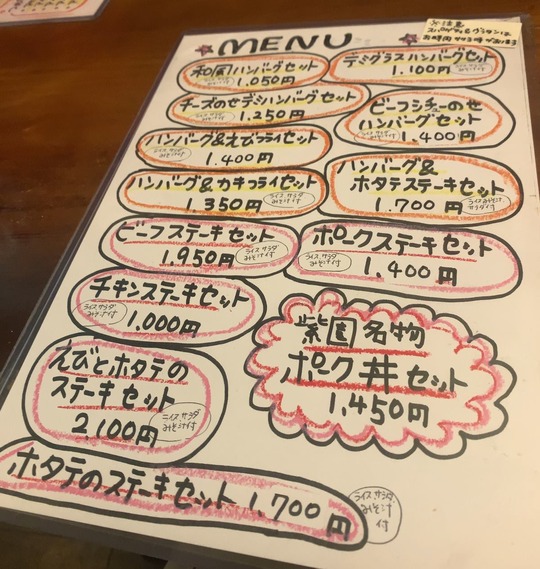 ご注意
スパゲティ&グラタンは
お時間かかる時があります
MENU
和風ハンバーグセット
ライス サラダ
みそ汁付
1.050円
デミグラスハンバーグセット
ライス サラダ
みそ汁付
1.100円
チーズのせデミハンバーグセット
ライス サラダ
みそ汁付
1.250円
ビーフシチューのせ
ハンバーグセット
ライス サラダ
みそ汁付
1.400円
ハンバーグ&えびフライセット
ライス サラダ
みそ汁付
1.400円
ハンバーグ&
ホタテステーキセット
1.700円
ライス みそ汁
サラダ付
ハンバーグ&カキフライセット
1.350円
ライス サラダ
みそ汁付
ビーフステーキセット
1.950円
ライス サラダ
みそ汁付
ポークステーキセット
ライス サラダ
みそ汁付
1.400円
チキンステーキセット
ライス サラダ
みそ汁付
1.000円
紫園名物
ポーク丼セット
1.450円
えびとホタテの
ステーキセット
2.100円
ライス サラダ
みそ汁付
ホタテのステーキセット 1.700円
ライス サラダ
みそ汁
付